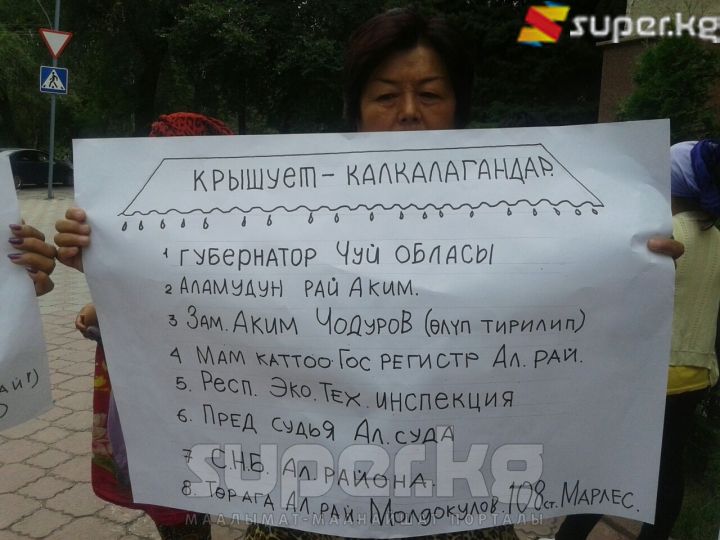 super.kg
КРЫШУЕТ - КАЛКАЛАГАНДАР.
1 ГУБЕРНАТОР ЧУЙ ОБЛАСЫ
2 АЛАМУДУН РАЙ АКИМ.
3 ЗАМ. АКИМ ЧОДУРОВ (ӨЛҮП ТИРИЛИП)
4 МАМ КАТТОО-ГОС РЕГИСТР АЛ. РАЙ.
5. РЕСП. ЭКО. ТЕХ. ИНСПЕКЦИЯ
6. ПРЕД СУДЬЯ АЛ. СУДА
7 С.Н.Б. АЛ. РАЙОНА.
8. ТӨРАГА АЛ. РАЙ МОЛДОКУЛОВ. 108 СТ. МАРЛЕС.
super.kg
МААЛЫМАТ-МААНАЙШАТ ПОРТАЛЫ